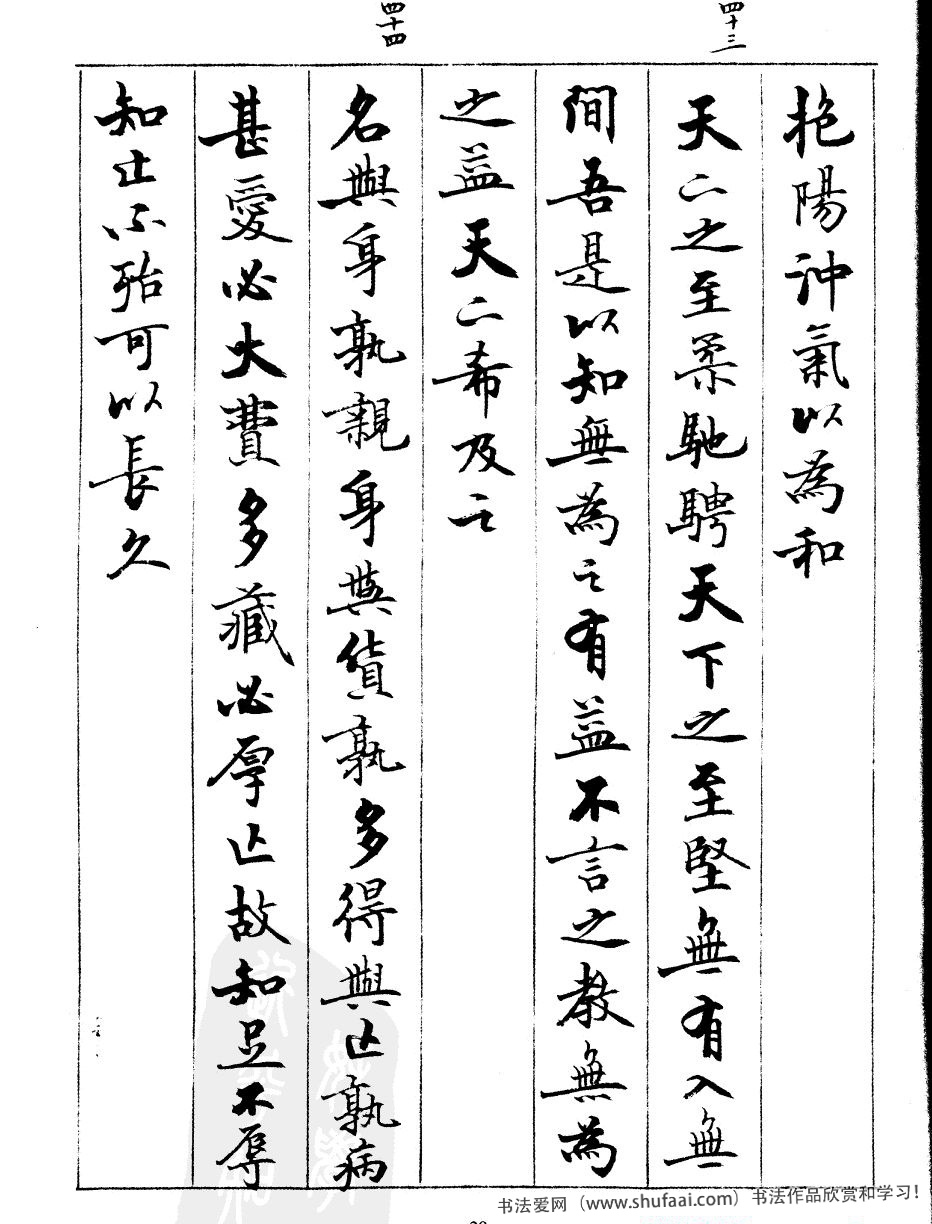 四十三
四十四
抱陽沖氣以為和
天下之至柔馳騁天下之至堅無有入無
間吾是以知無為之有益不言之教無為
之益天下希及之
名與身孰親身與貨孰多得與亡孰病
甚愛必大費多藏必厚亡故知足不辱
知止不殆可以長久
书法爱网（www.shufaai.com）书法作品欣赏和学习！